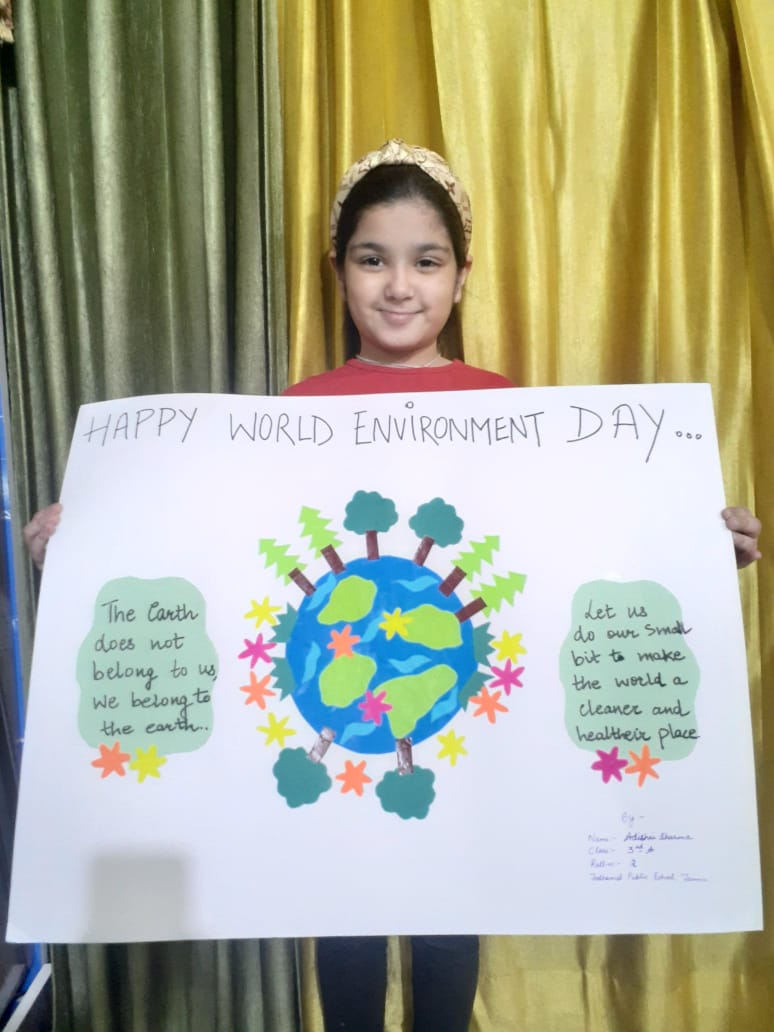 HAPPY WORLD ENVIRONMENT DAY...
The Earth
does not
belong to us,
we belong to
the earth..
Let us
do our small
bit to make
the world a
cleaner and
healtheir place
By :-
Name:- Sharma
Class:- 3rd A
Roll no:- 2
Public School